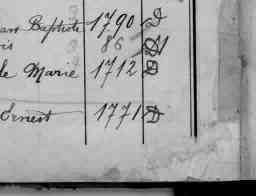 an Baptiste 1790 D
is 86 N
le Marie 1712 D
Ernest 1771 D